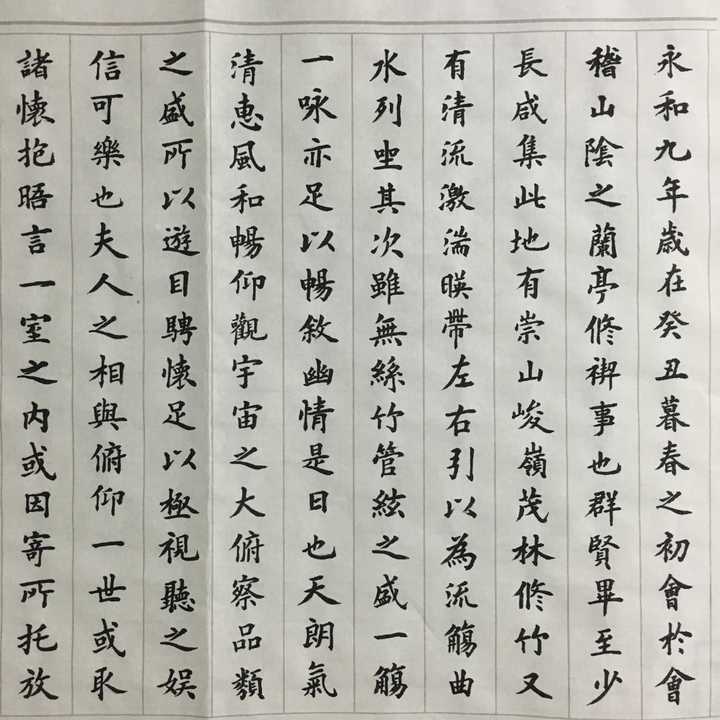 永和九年歲在癸丑暮春之初會於會
稽山陰之蘭亭修禊事也群賢畢至少
長咸集此地有崇山峻嶺茂林修竹又
有清流激湍暎帶左右引以為流觴曲
水列坐其次雖無絲竹管絃之盛一觴
一咏亦足以暢敘幽情是日也天朗氣
清惠風和暢仰觀宇宙之大俯察品類
之盛所以遊目騁懷足以極視聽之娛
信可樂也夫人之相與俯仰一世或取
諸懷抱晤言一室之內或因寄所托放